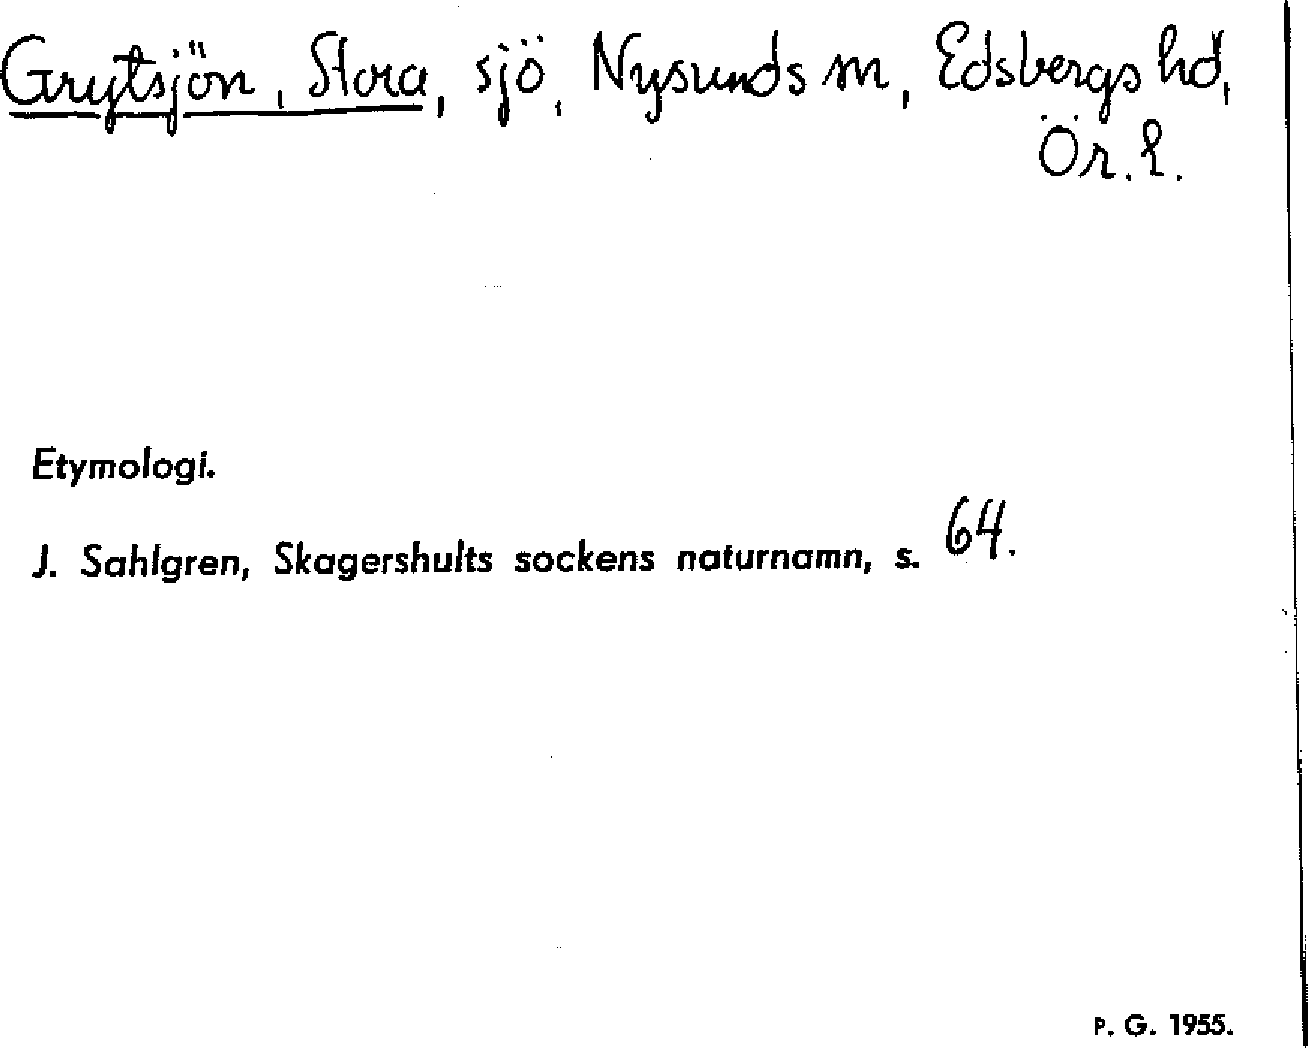 Grytsjön, Stora, sjö, Nysunds sn, Edsbergs hd,
Ör. l.
Etymologi.
J. Sahlgren, Skagershults sockens naturnamn, s. 64.
P. G. 1955.